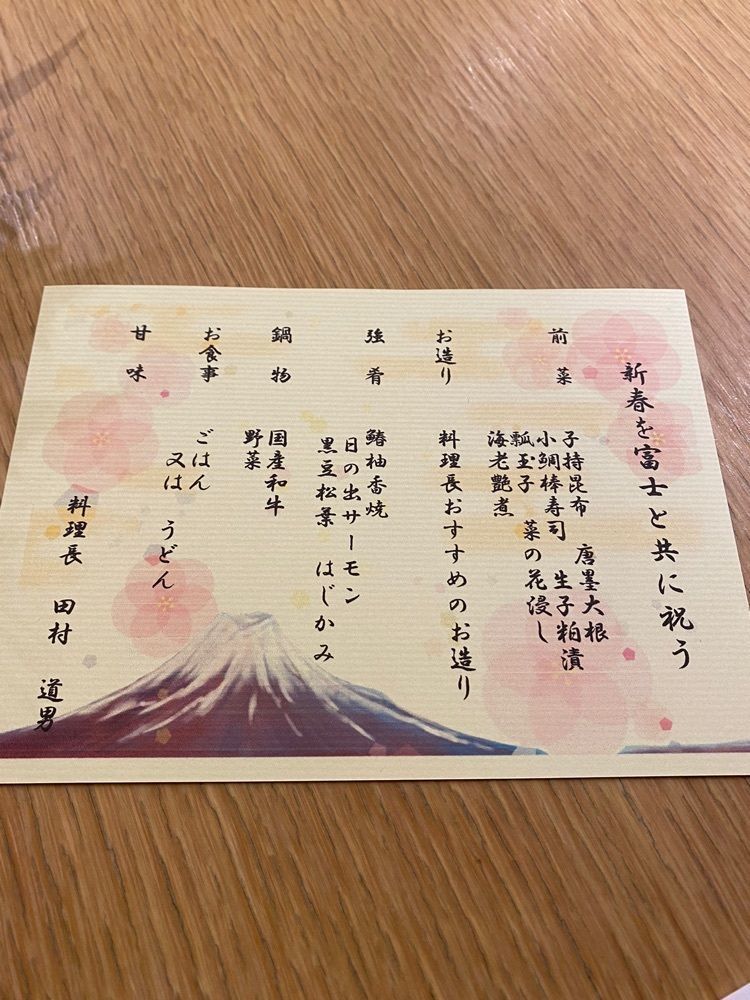 新春を富士と共に祝う
前菜
子持昆布 唐墨大根
小鯛棒寿司 生子粕漬
瓢玉子 菜の花浸し
海老艶煮
お造り
料理長おすすめのお造り
強肴
鰆柚香焼
日の出サーモン
黒豆松葉 はじかみ
鍋物
国産和牛
野菜
お食事
ごはん
又は うどん
甘味
料理長 田村 道男